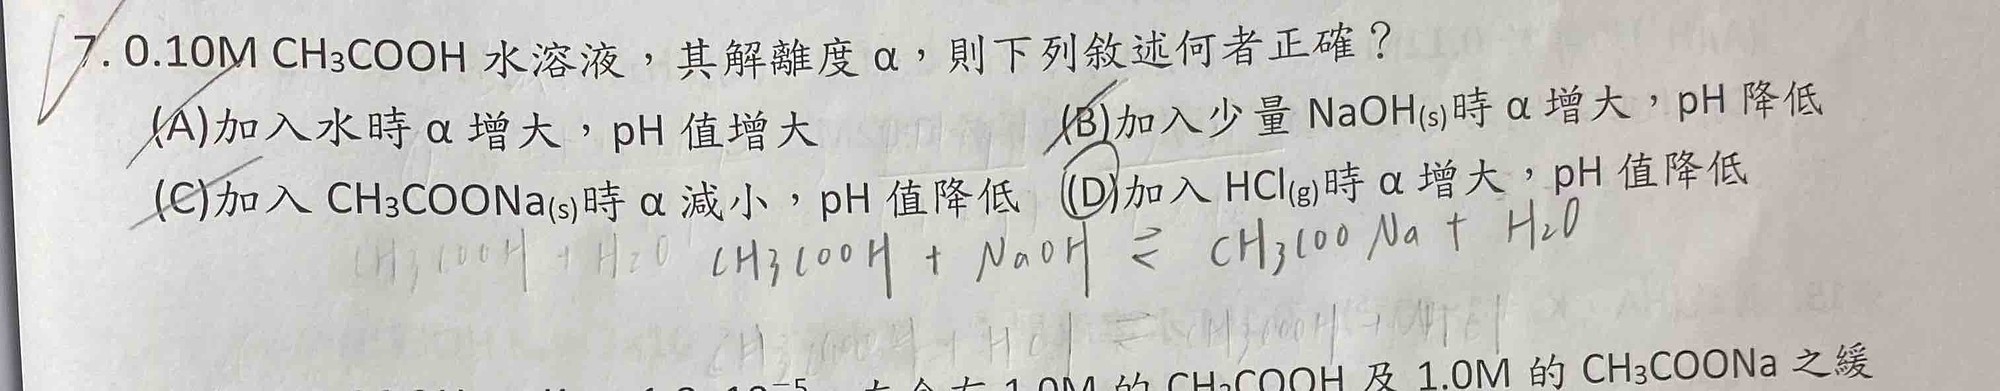 7. 0.10M CH₃COOH 水溶液，其解離度 α，則下列敘述何者正確？
(A)加入水時 α 增大，pH 值增大 (B)加入少量 NaOH(s)時 α 增大，pH 降低
(C)加入 CH₃COONa(s)時 α 減小，pH 值降低 (D)加入 HCl(g)時 α 增大，pH 值降低
CH₃COOH + H₂O CH₃COOH + NaOH ⇌ CH₃COO Na + H₂O
CH₃COOH + HCl ⇌ CH₃COOH +
1.0M 的 CH₃COOH 及 1.0M 的 CH₃COONa 之緩